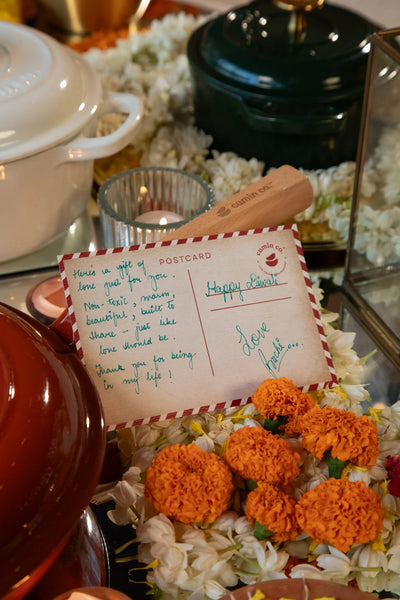 cumin co.
POSTCARD
cumin co.
Here's a gift of
love just for you.
Non-toxic, warm,
beautiful, built to
share – just like
love should be.
Thank you for being
in my life!
Happy Diwali
Love